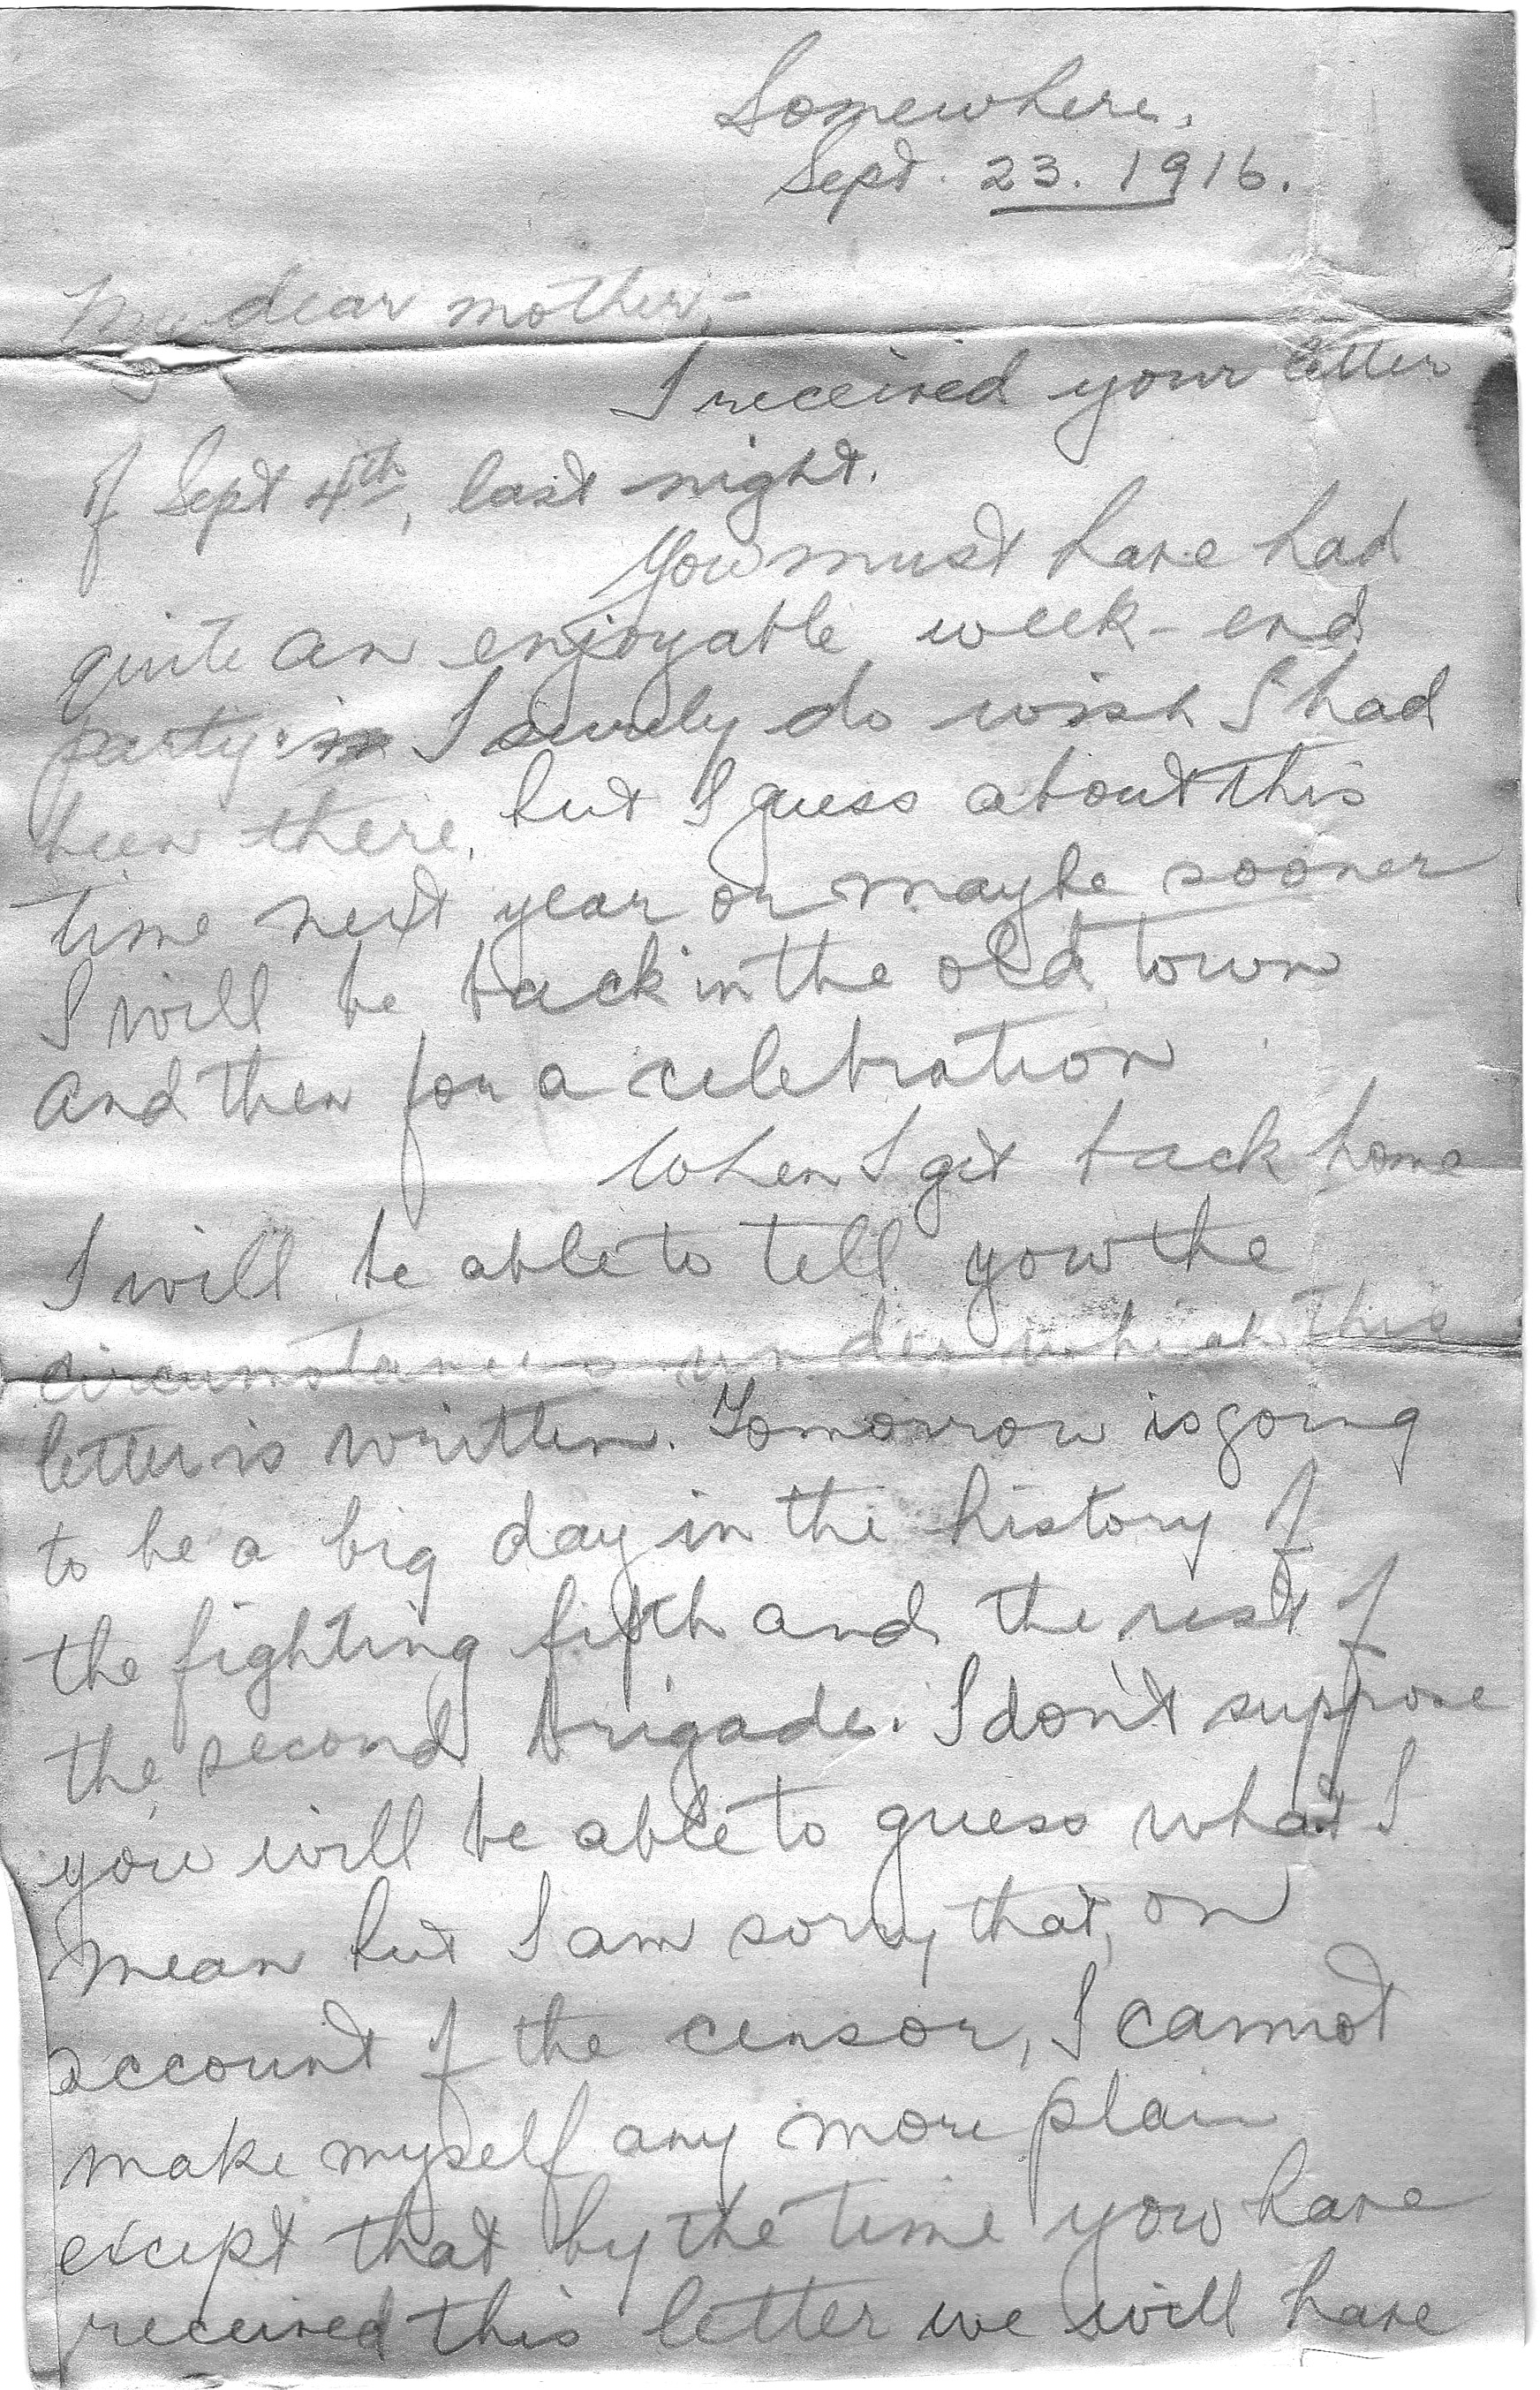 Somewhere.
Sept. 23. 1916.
My dear mother,-
I received your letter
of Sept 4th, last night.
You must have had
quite an enjoyable week-end
party. I surely do wish I had
been there, but I guess about this
time next year or maybe sooner
I will be back in the old town
and then for a celebration
When I get back home
I will be able to tell you the
circumstances under which this
letter is written. Tomorrow is going
to be a big day in the history of
the fighting fifth and the rest of
the second brigade. I don't suppose
you will be able to guess what I
mean but I am sorry that, on
account of the censor, I cannot
make myself any more plain
except that by the time you have
received this letter we will have